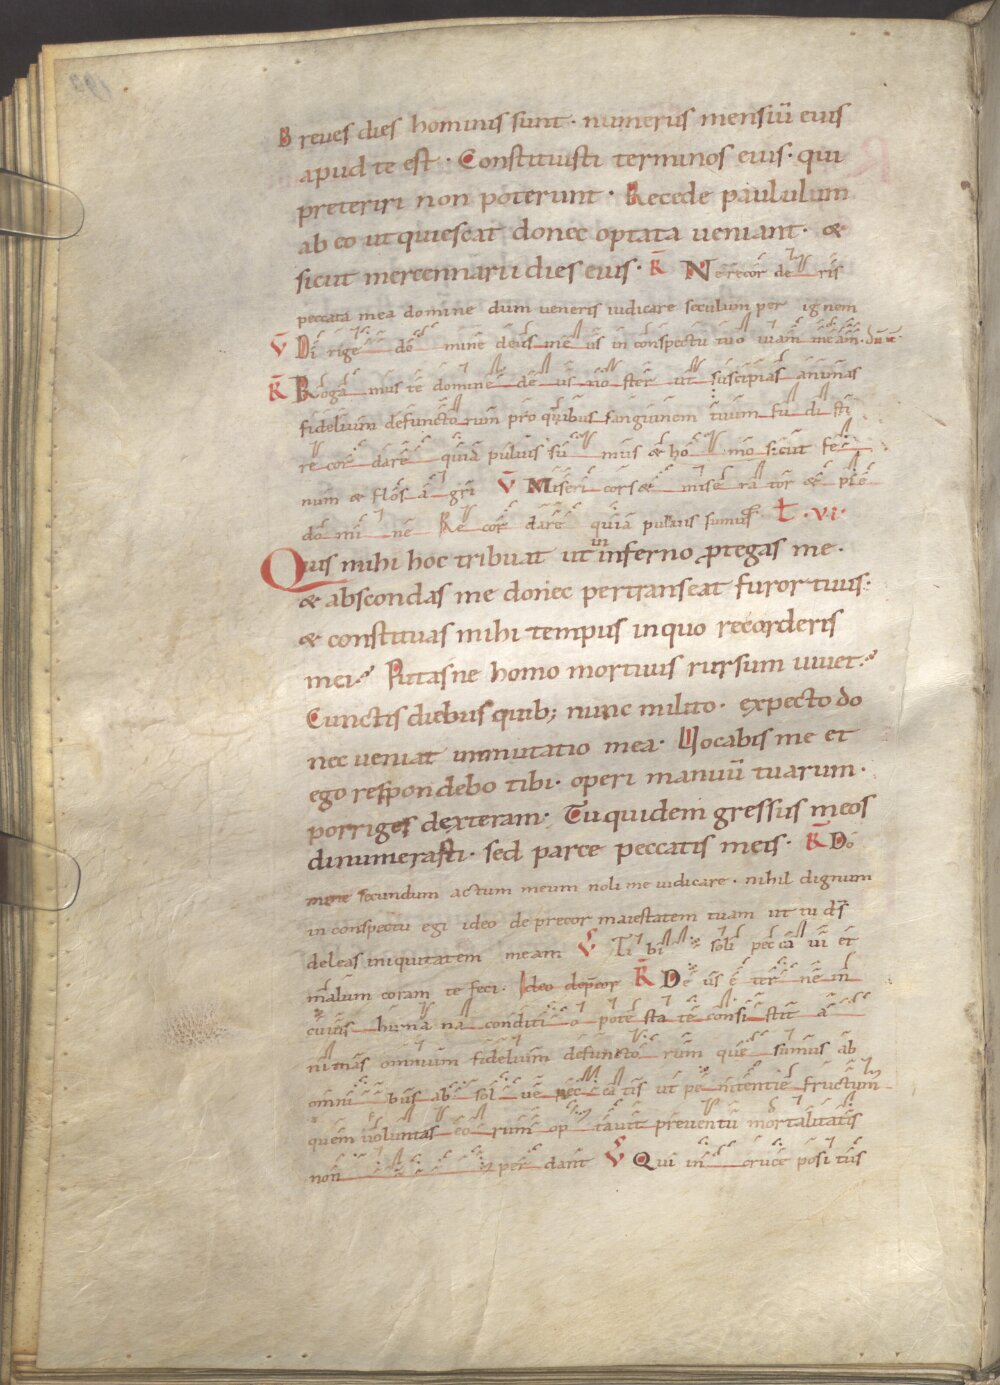 Breues dies hominis sunt · numerus mensiū eius
apud te est · Constituisti terminos eius · qui
preteriri non poterunt · Recede paululum
ab eo ut quiescat donec optata ueniant · &
sicut mercennarii dies eius · R Ne recor de ris
peccata mea domine dum ueneris iudicare seculum per ignem
V Di rige do mine deus me us in conspectu tuo uiam meam · dū ue
R Roga mus te domine de us no ster ut suscipias animas
fidelium defuncto rum pro quibus sanguinem tuum fu di sti
re cor dare quia puluis su mus & ho mo sicut fe
num & flos a gri V Miseri cors & mise ra tor & ple
do mi ne Re cor dare quia puluis sumus L · VI ·
Quis mihi hoc tribuat ut in inferno ꝓtegas me ·
& abscondas me donec pertranseat furor tuus ·
& constituas mihi tempus in quo recorderis
mei · Putasne homo mortuus rursum uiuet ·
Cunctis diebus quib; nunc milito · expecto do
nec ueniat inmutatio mea · Uocabis me et
ego respondebo tibi · operi manuū tuarum ·
porriges dexteram · Tu quidem gressus meos
dinumerasti · sed parce peccatis meis · R Do
mine secundum actum meum noli me iudicare · nihil dignum
in conspectu tuo egi ideo deprecor maiestatem tuam ut tu ds̄
deleas iniquitatem meam V Ti bi soli pec ca ui et
malum coram te feci · Ideo dep̄cor R De us e ter ne in
cuius huma na conditi o pote sta te consi stit a
ni mas omnium fidelium defuncto rum que sumus ab
omni bus ab sol ue pec ca tis ut pe nitentie fructum
quem uoluntas eo rum op tauit preuentu mortalitatis
non per dant V Qui in cruce posi tus